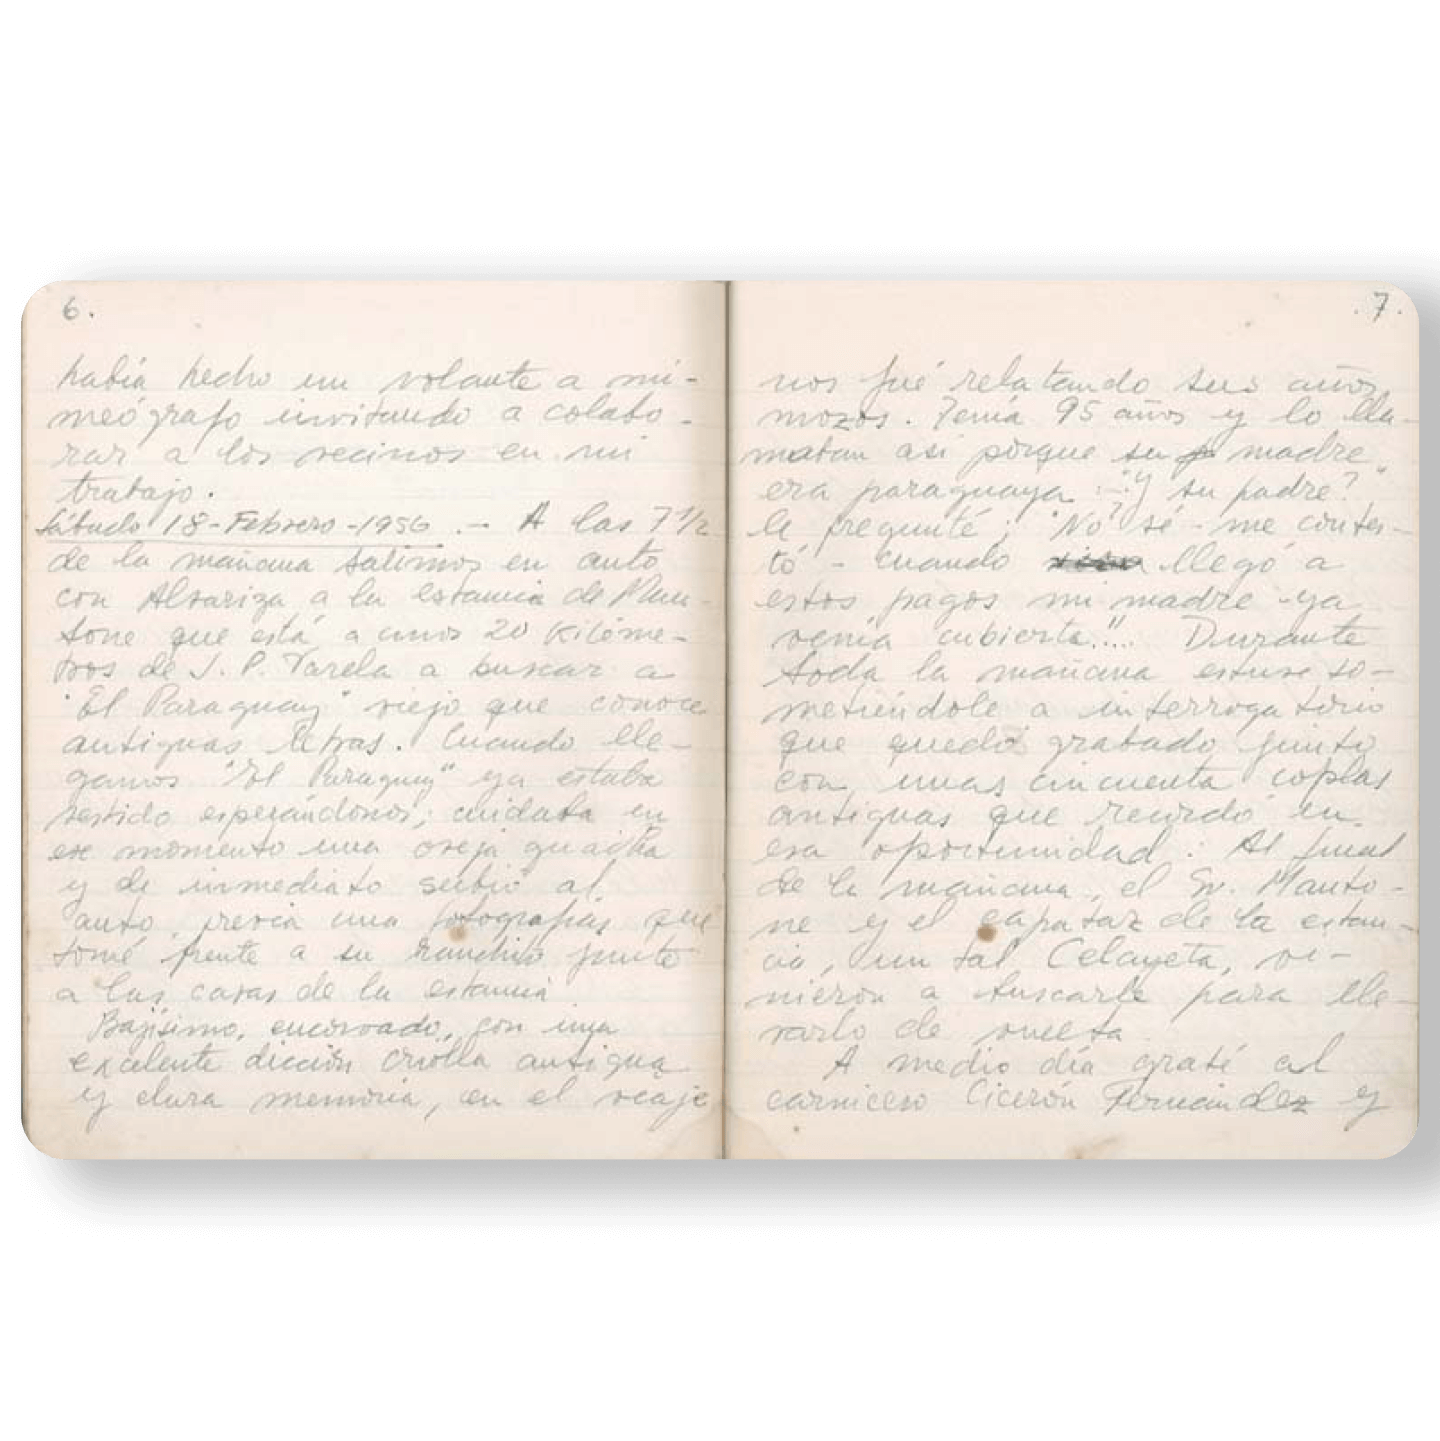 6.
había hecho un volante a mi-
meógrafo invitando a colabo-
rar a los vecinos en mi
trabajo.
Sábado 18-Febrero-1956.- A las 7 1/2
de la mañana salimos en auto
con Alvariza a la estancia de Man-
tone que está a unos 20 Kilóme-
tros de J. P. Varela a buscar a
"El Paraguay" viejo que conoce
antiguas letras. Cuando lle-
gamos "El Paraguay" ya estaba
vestido esperándonos; cuidaba en
ese momento una oveja guacha
y de inmediato subió al
auto, previa una fotografías que
tomé frente a su ranchito junto
a las casas de la estancia.
Bajísimo, encorvado, con una
excelente dicción criolla antigua
y clara memoria, en el viaje
7.
nos fué relatando sus años
mozos. Tenía 95 años y lo lla-
maban así porque su madre
era paraguaya. -"¿Y su padre?"
le pregunté; "No sé - me contes-
tó - cuando llegó a
estos pagos mi madre ya
venía cubierta."... Durante
toda la mañana estuve so-
metiéndole a interrogatorio
que quedó grabado junto
con unas cincuenta coplas
antiguas que recordó en
esa oportunidad. Al final
de la mañana, el Sr. Manto-
ne y el capataz de la estan-
cia, un tal Celayeta, vi-
nieron a buscarle para lle-
varlo de vuelta.
A medio día grabé al
carnicero Cicerón Fernández y